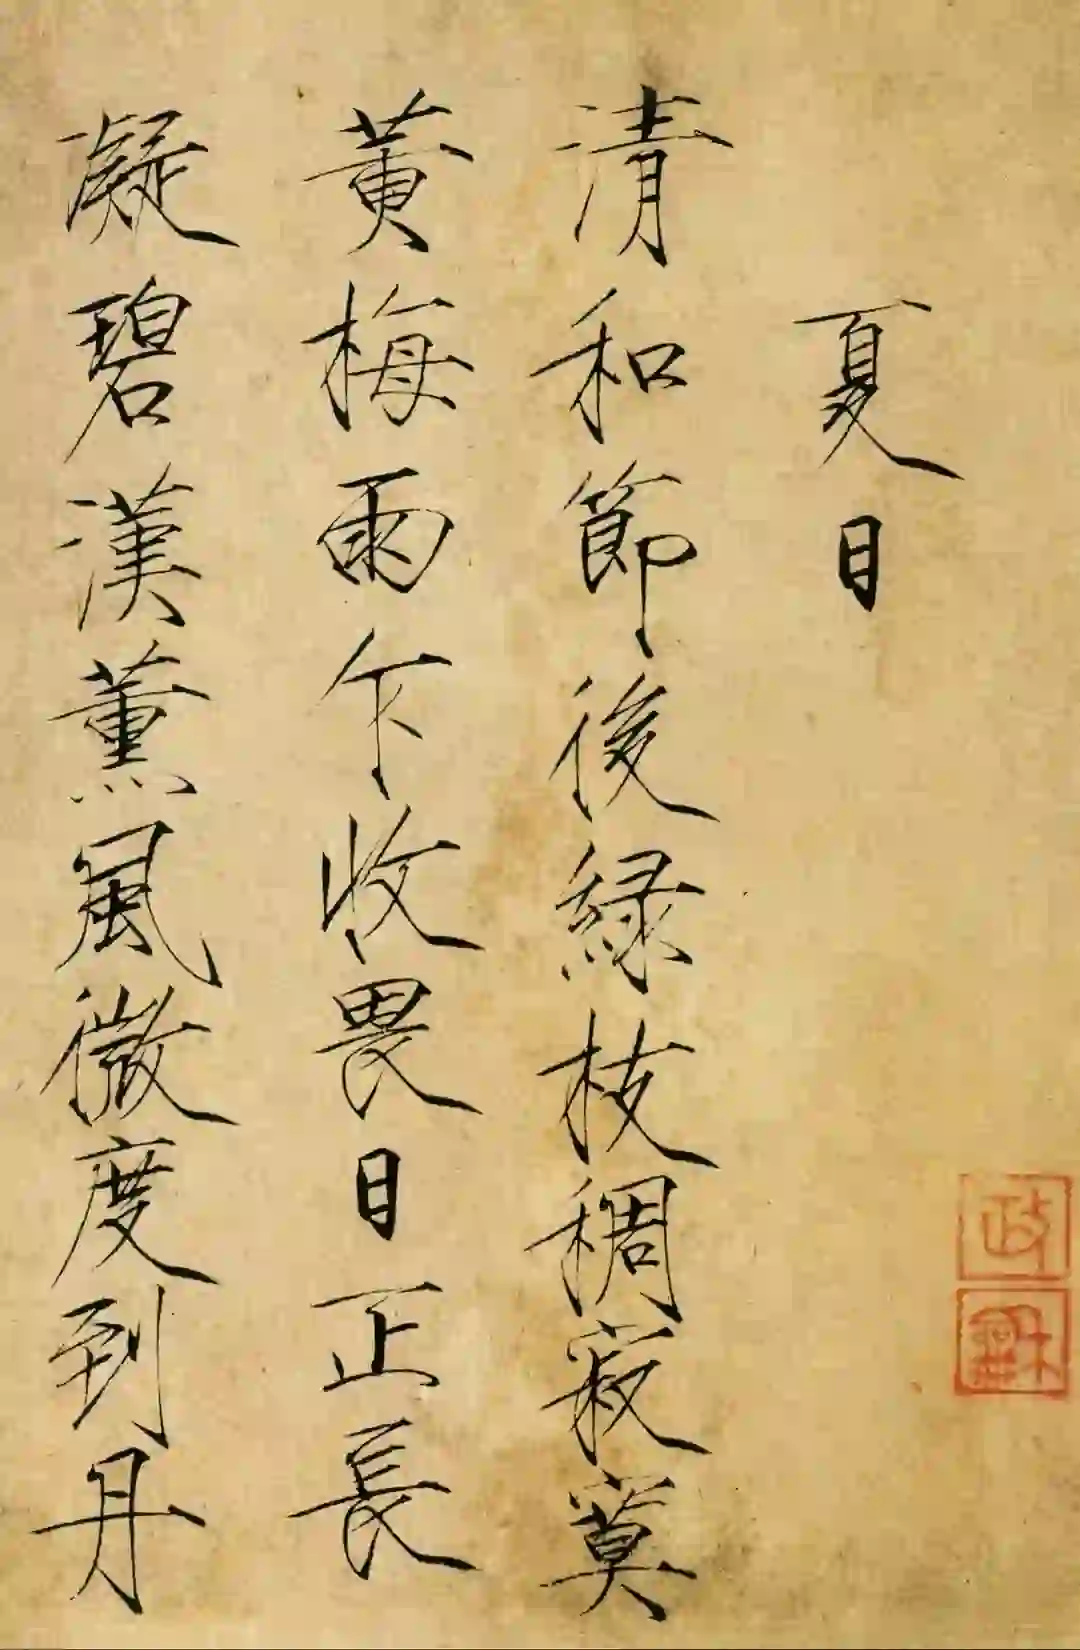 夏日
清和節後綠枝稠寂寞
黃梅雨乍收畏日正長
凝碧漢薰風微度到丹
政
龢